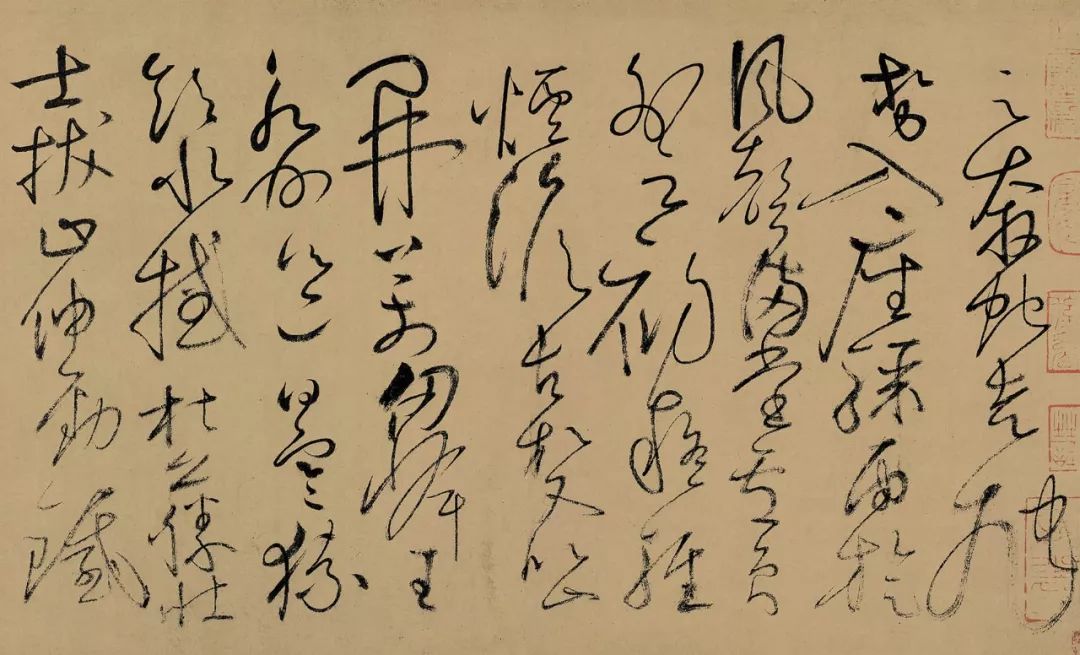 云奔蛇走虺
勢入座驟雨旋
風聲滿堂盧員
外云初疑輕
煙澹古松又似山
開萬仞峰王
永州邕曰寒猿
飲水撼枯藤壯
士拔山伸勁鐵